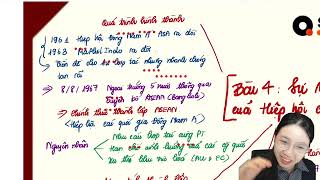 Quá trình hình thành
1961 Hiệp hội Đông Nam Á ASA ra đời
1963 MAPHILINDO ra đời
tồn tại nhưng nhanh chóng
tan rã
8/8/1967 Ngoại trưởng 5 nước thông qua
tuyên bố ASEAN (Bangkok)
Chính thức thành lập ASEAN
(Hiệp hội các quốc gia Đông Nam Á)
Nguyên nhân
Nhu cầu hợp tác cùng PT
Hạn chế ảnh hưởng của các
Xu thế khu vực hóa (AU, EC)
Bài 4: Sự
của Hiệp hội